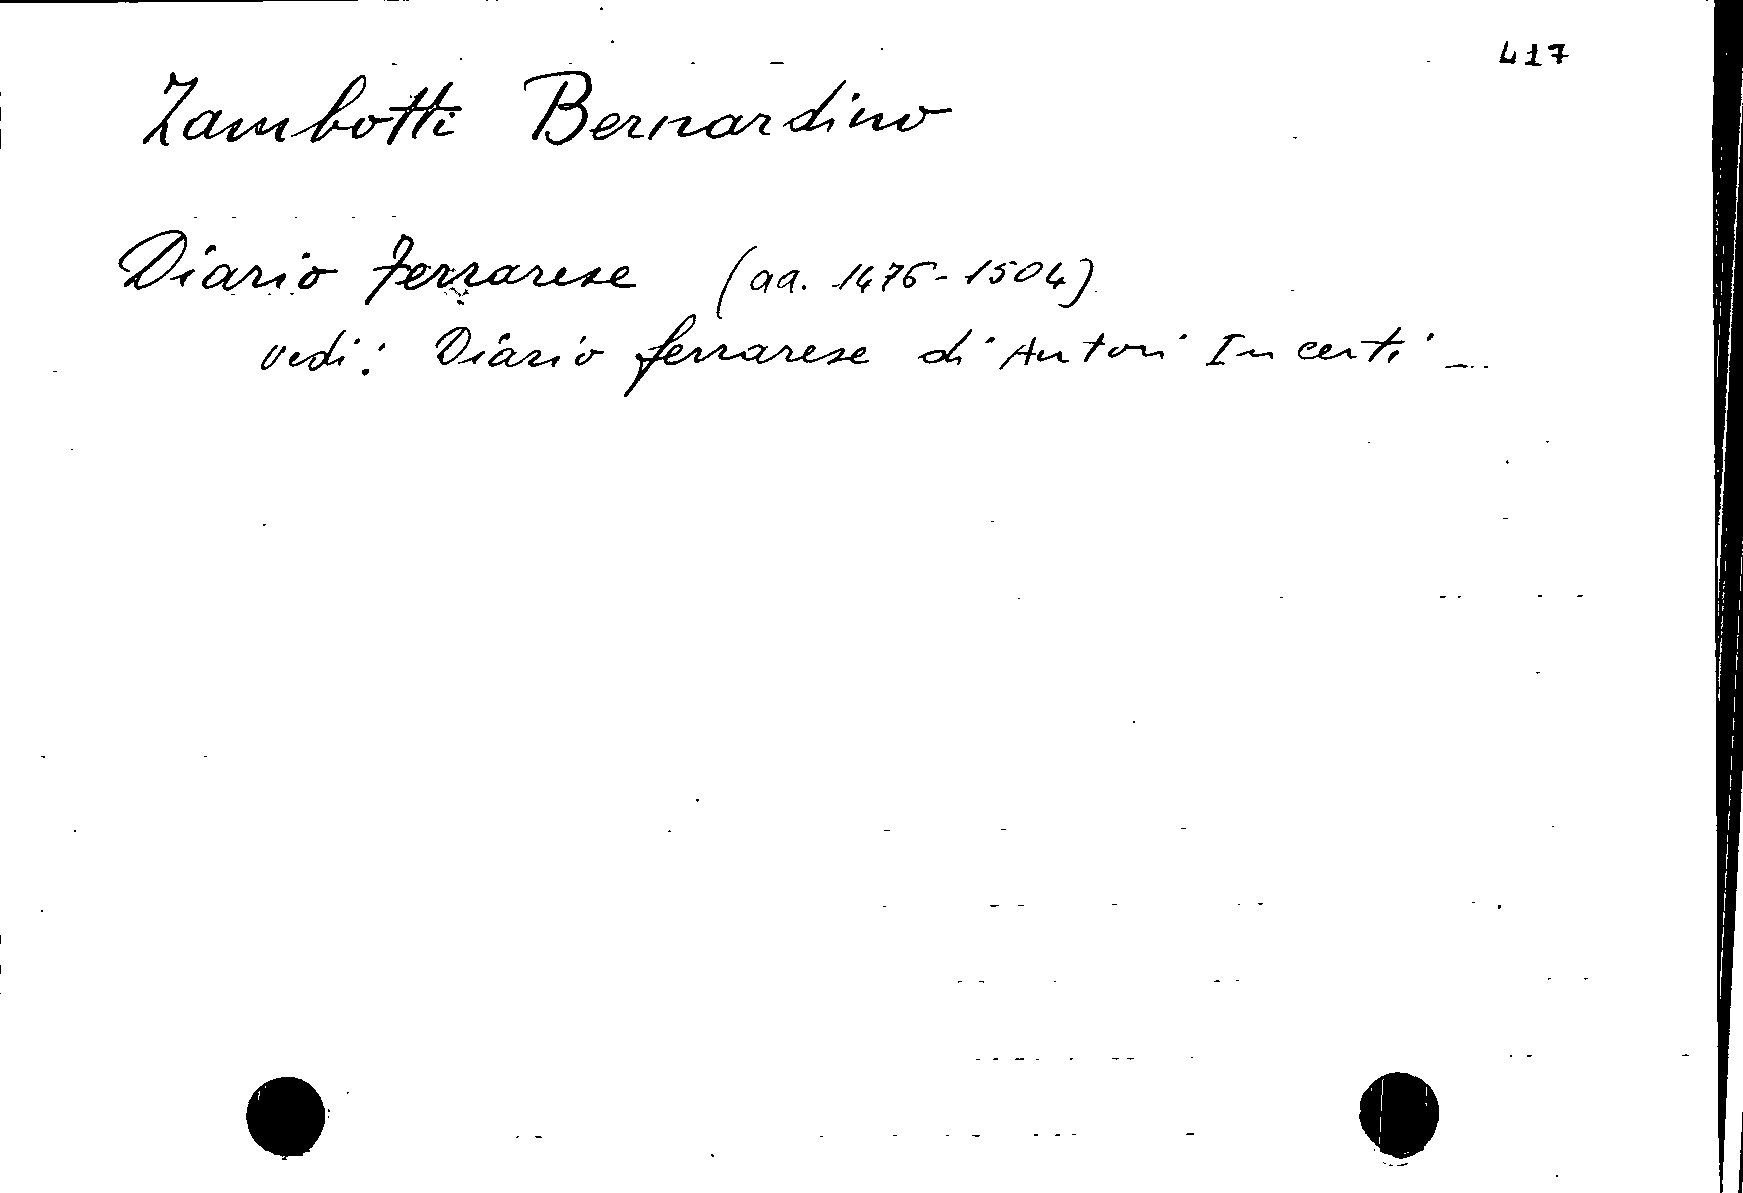 417
Zambotti Bernardino
Diario Ferrarese (aa. 1476-1504)
vedi: Diario ferrarese di Autori Incerti _..